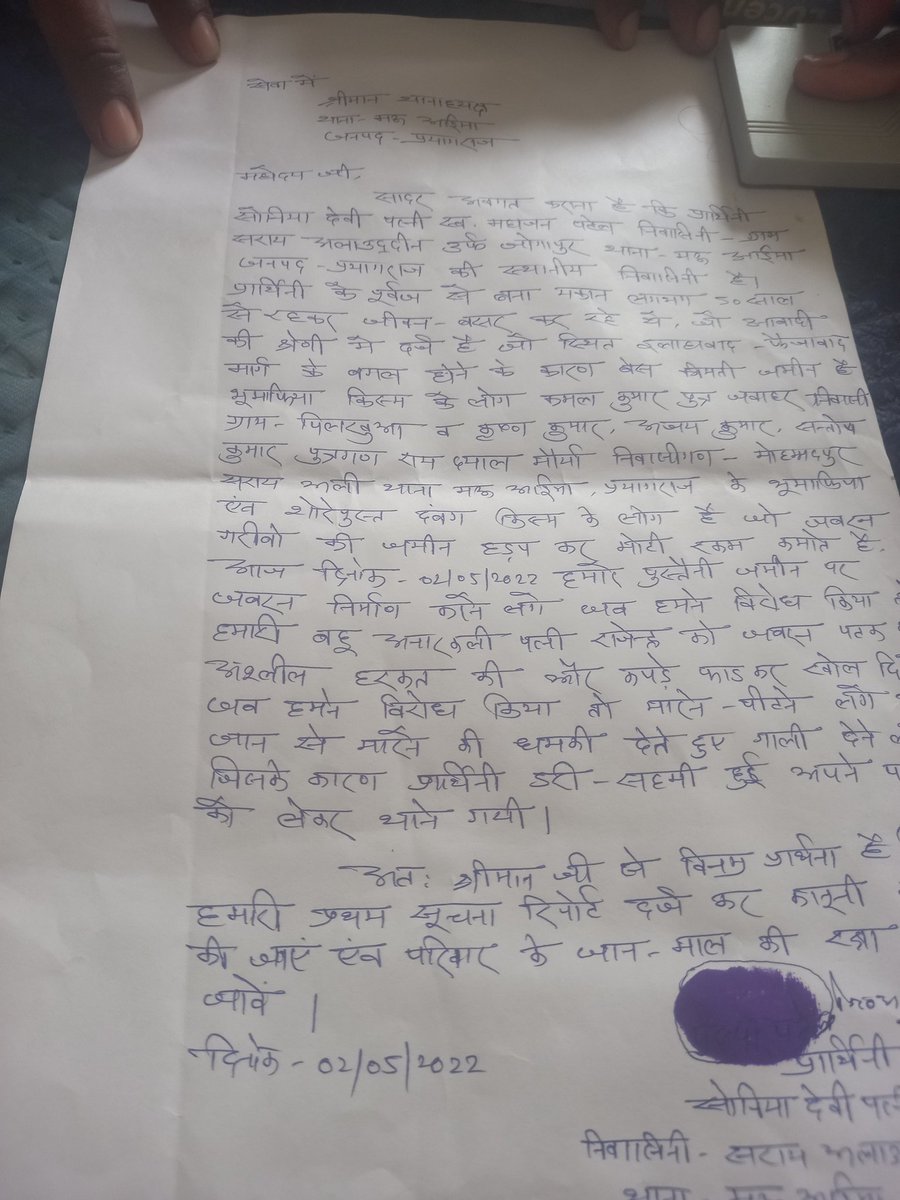 सेवा में
श्रीमान थानाध्यक्ष
थाना - मऊ आईमा
जनपद - प्रयागराज
महोदय जी,
सादर अवगत कराना है कि प्रार्थिनी
सोनिया देवी पत्नी स्व. महाजन पटेल निवासिनी - ग्राम
सराय अलाउद्दीन उर्फ जोगापुर थाना - मऊ आईमा
जनपद - प्रयागराज की स्थानीय निवासिनी है।
प्रार्थिनी के पूर्वज से बना मकान लगभग 50 साल
से रहकर जीवन - बसर कर रहे थे, जो आबादी
की श्रेणी में दर्ज है जो स्थित इलाहाबाद - फैजाबाद
मार्ग के बगल होने के कारण बेस कीमती जमीन है
भूमाफिया किस्म के लोग कमल कुमार पुत्र जवाहर निवासी
ग्राम - पिलखुआ व कृष्ण कुमार, अजय कुमार, सन्तोष
कुमार पुत्रगण राम दयाल मौर्या निवासीगण - मोहम्मदपुर
सराय अली थाना मऊ आईमा, प्रयागराज के भूमाफिया
एंव शोरेपुस्त दबंग किस्म के लोग है जो जबरन
गरीबो की जमीन हड़प कर मोटी रकम कमाते है,
आज दिनांक - 02/05/2022 हमारे पुस्तैनी जमीन पर
जबरन निर्माण करने लगे जब हमने विरोध किया
हमारी बहू अनारकली पत्नी राजेन्द्र को जबरन पटक
अश्लील हरकत की और कपड़े फाडकर खोल
जब हमने विरोध किया तो मारने - पीटने लगे
जान से मारने की धमकी देते हुए गाली देने
जिसके कारण प्रार्थिनी डरी - सहमी हुई अपने
को लेकर थाने गयी।
अतः श्रीमान जी से विनम्र प्रार्थना है
हमारी प्रथम सूचना रिपोर्ट दर्ज कर कानूनी
की जाएं एंव परिवार के जान - माल की रक्षा
जावें।
दिनांक - 02/05/2022
प्रार्थिनी
सोनिया देवी
निवासिनी - सराय
थाना